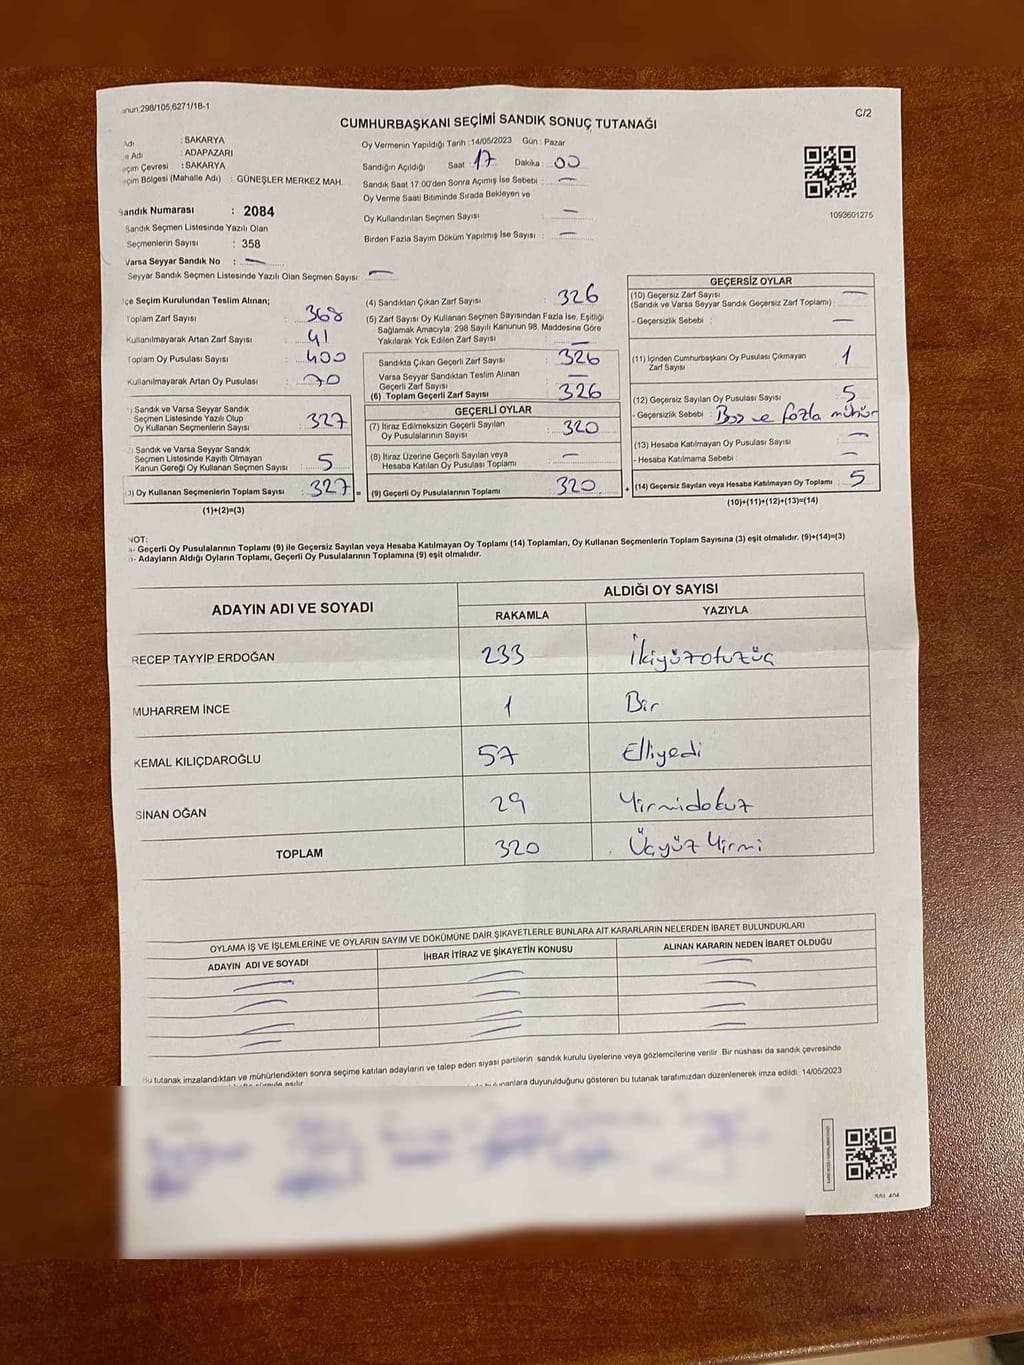 298/105,6271/1B-1
C/2
CUMHURBAŞKANI SEÇİMİ SANDIK SONUÇ TUTANAĞI
Adı : SAKARYA
Adı : ADAPAZARI
Çevresi : SAKARYA
Bölgesi (Mahalle Adı) : GÜNEŞLER MERKEZ MAH.
Sandık Numarası : 2084
Sandık Seçmen Listesinde Yazılı Olan
Seçmenlerin Sayısı : 358
Varsa Seyyar Sandık No : —
Seyyar Sandık Seçmen Listesinde Yazılı Olan Seçmen Sayısı: —
Oy Vermenin Yapıldığı Tarih :14/05/2023 Gün : Pazar
Sandığın Açıldığı Saat : 17 Dakika : 00
Sandık Saat 17.00'den Sonra Açımış İse Sebebi : —
Oy Verme Saati Bitiminde Sırada Bekleyen ve
Oy Kullandırılan Seçmen Sayısı —
Birden Fazla Sayım Döküm Yapılmış İse Sayısı : —
1093601275
İlçe Seçim Kurulundan Teslim Alınan;
Toplam Zarf Sayısı : 368
Kullanılmayarak Artan Zarf Sayısı : 41
Toplam Oy Pusulası Sayısı : 400
Kullanılmayarak Artan Oy Pusulası : 70
Sandık ve Varsa Seyyar Sandık
Seçmen Listesinde Yazılı Olup
Oy Kullanan Seçmenlerin Sayısı : 327
Sandık ve Varsa Seyyar Sandık
Seçmen Listesinde Kayıtlı Olmayan
Kanun Gereği Oy Kullanan Seçmen Sayısı : 5
3) Oy Kullanan Seçmenlerin Toplam Sayısı : 327 =
(1)+(2)=(3)
(4) Sandıktan Çıkan Zarf Sayısı : 326
(5) Zarf Sayısı Oy Kullanan Seçmen Sayısından Fazla İse, Eşitliği
Sağlamak Amacıyla; 298 Sayılı Kanunun 98. Maddesine Göre
Yakılarak Yok Edilen Zarf Sayısı : —
Sandıkta Çıkan Geçerli Zarf Sayısı : 326
Varsa Seyyar Sandıktan Teslim Alınan
Geçerli Zarf Sayısı : —
(6) Toplam Geçerli Zarf Sayısı : 326
GEÇERLİ OYLAR
(7) İtiraz Edilmeksizin Geçerli Sayılan
Oy Pusulalarının Sayısı : 320
(8) İtiraz Üzerine Geçerli Sayılan veya
Hesaba Katılan Oy Pusulası Toplamı : —
(9) Geçerli Oy Pusulalarının Toplamı : 320 +
GEÇERSİZ OYLAR
(10) Geçersiz Zarf Sayısı : —
(Sandık ve Varsa Seyyar Sandık Geçersiz Zarf Toplamı)
- Geçersizlik Sebebi : —
(11) İçinden Cumhurbaşkanı Oy Pusulası Çıkmayan
Zarf Sayısı : 1
(12) Geçersiz Sayılan Oy Pusulası Sayısı : 5
- Geçersizlik Sebebi : Boş ve fazla mühür
(13) Hesaba Katılmayan Oy Pusulası Sayısı : —
- Hesaba Katılmama Sebebi : —
(14) Geçersiz Sayılan veya Hesaba Katılmayan Oy Toplamı : 5
(10)+(11)+(12)+(13)=(14)
NOT:
a- Geçerli Oy Pusulalarının Toplamı (9) ile Geçersiz Sayılan veya Hesaba Katılmayan Oy Toplamı (14) Toplamları, Oy Kullanan Seçmenlerin Toplam Sayısına (3) eşit olmalıdır. (9)+(14)=(3)
b- Adayların Aldığı Oyların Toplamı, Geçerli Oy Pusulalarının Toplamına (9) eşit olmalıdır.
ADAYIN ADI VE SOYADI ALDIĞI OY SAYISI
RAKAMLA YAZIYLA
RECEP TAYYİP ERDOĞAN 233 İkiyüzotuzüç
MUHARREM İNCE 1 Bir
KEMAL KILIÇDAROĞLU 57 Elliyedi
SİNAN OĞAN 29 Yirmidokuz
TOPLAM 320 Üçyüz Yirmi
OYLAMA İŞ VE İŞLEMLERİNE VE OYLARIN SAYIM VE DÖKÜMÜNE DAİR ŞİKAYETLERLE BUNLARA AİT KARARLARIN NELERDEN İBARET BULUNDUKLARI
ADAYIN ADI VE SOYADI İHBAR İTİRAZ VE ŞİKAYETİN KONUSU ALINAN KARARIN NEDEN İBARET OLDUĞU
Bu tutanak imzalandıktan ve mühürlendikten sonra seçime katılan adayların ve talep eden siyasi partilerin sandık kurulu üyelerine veya gözlemcilerine verilir. Bir nüshası da sandık çevresinde
duyurulduğunu gösteren bu tutanak tarafımızdan düzenlenerek imza edildi. 14/05/2023